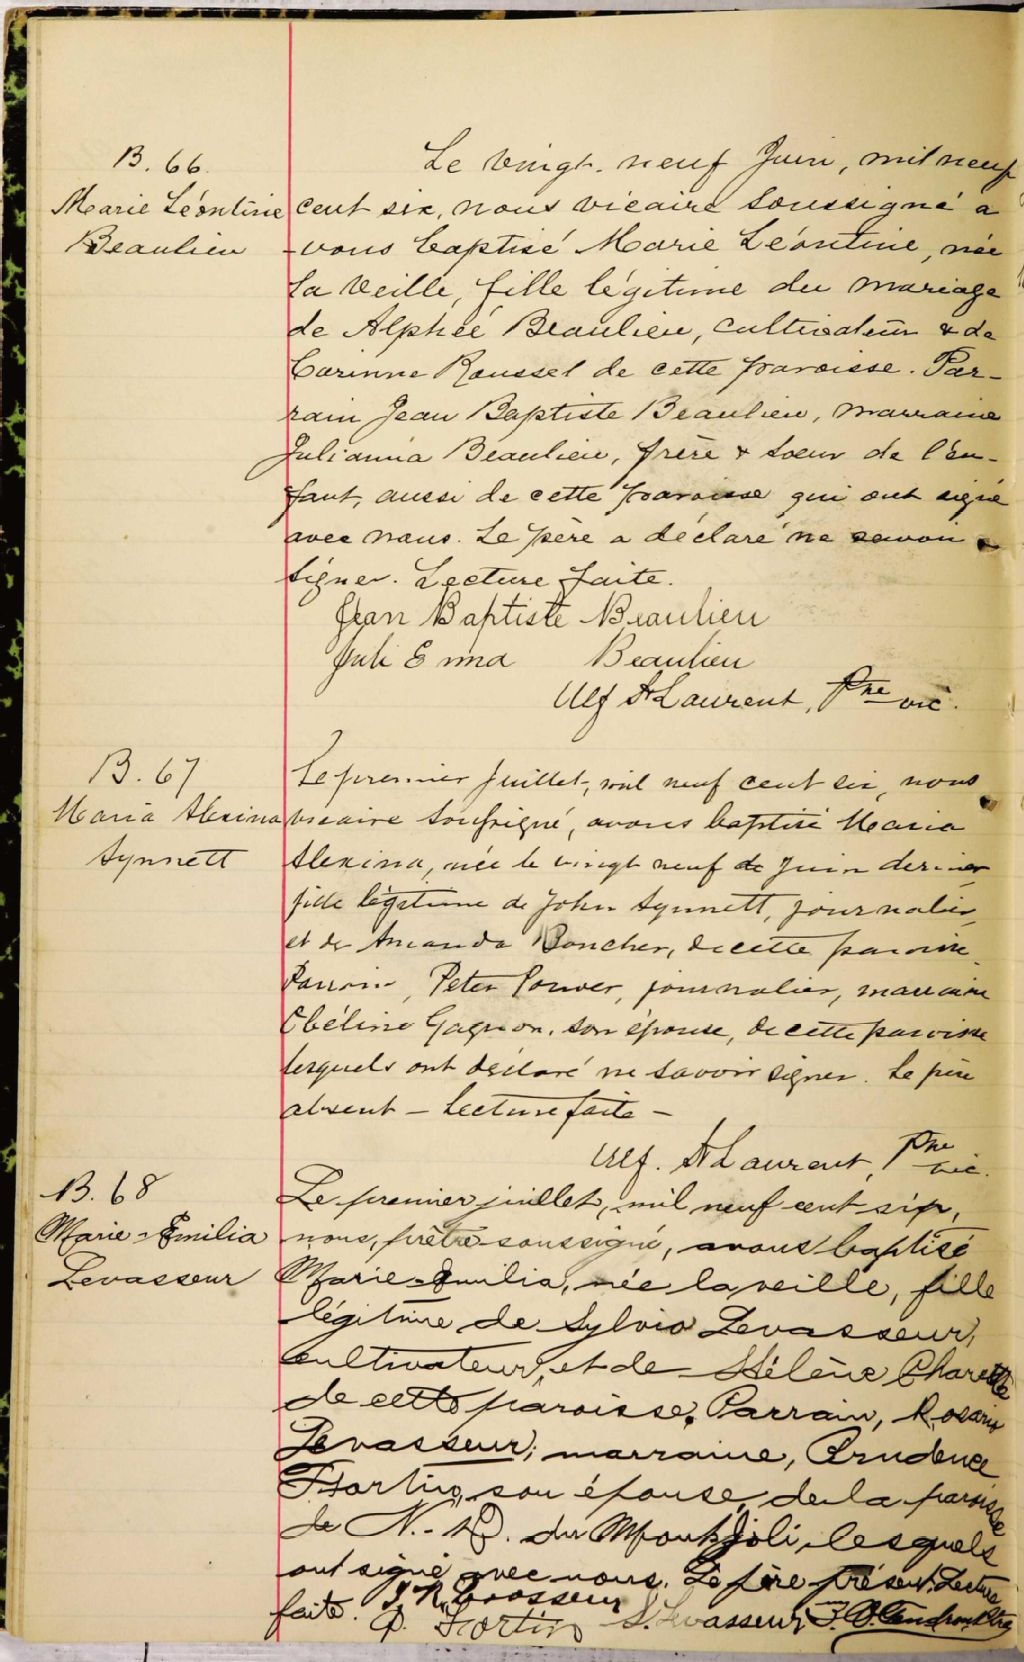 B. 66
Marie Léontine
Beaulieu
Le vingt-neuf Juin, mil neuf
cent six, nous vicaire soussigné a
-vons baptisé Marie Léontine, née
la veille, fille légitime du mariage
de Alphée Beaulieu, cultivateur & de
Corinne Roussel de cette paroisse. Par-
rain Jean Baptiste Beaulieu, marraine
Julianna Beaulieu, frère & soeur de l'en-
fant, aussi de cette paroisse qui ont signé
avec nous. Le père a déclaré ne savoir
signer. Lecture faite.
Jean Baptiste Beaulieu
Juli Enna Beaulieu
Ulf St Laurent, Ptre vic.
B. 67
Maria Alexina
Synnett
Le premier Juillet, mil neuf cent six, nous
vicaire soussigné, avons baptisé Maria
Alexina, née le vingt neuf de Juin dernier
fille légitime de John Synnett, journalier,
et de Amanda Boucher, de cette paroisse.
Parrain, Peter Power, journalier, marraine
Obéline Gagnon, son épouse, de cette paroisse
lesquels ont déclaré ne savoir signer. Le père
absent - Lecture faite -
Ulf. St Laurent, Ptre vic.
B. 68
Marie-Emilia
Levasseur
Le premier juillet, mil neuf cent six,
nous, prêtre soussigné, avons baptisé
Marie-Emilia, née la veille, fille
légitime de Sylvio Levasseur,
cultivateur, et de Hélène Charette
de cette paroisse. Parrain, Rosario
Levasseur; marraine, Prudence
Fortin, son épouse, de la paroisse
de N.-D. du Mont Joli, lesquels
ont signé avec nous. Le père présent. Lecture
faite. J. R. Levasseur
P. Fortin S. Levasseur